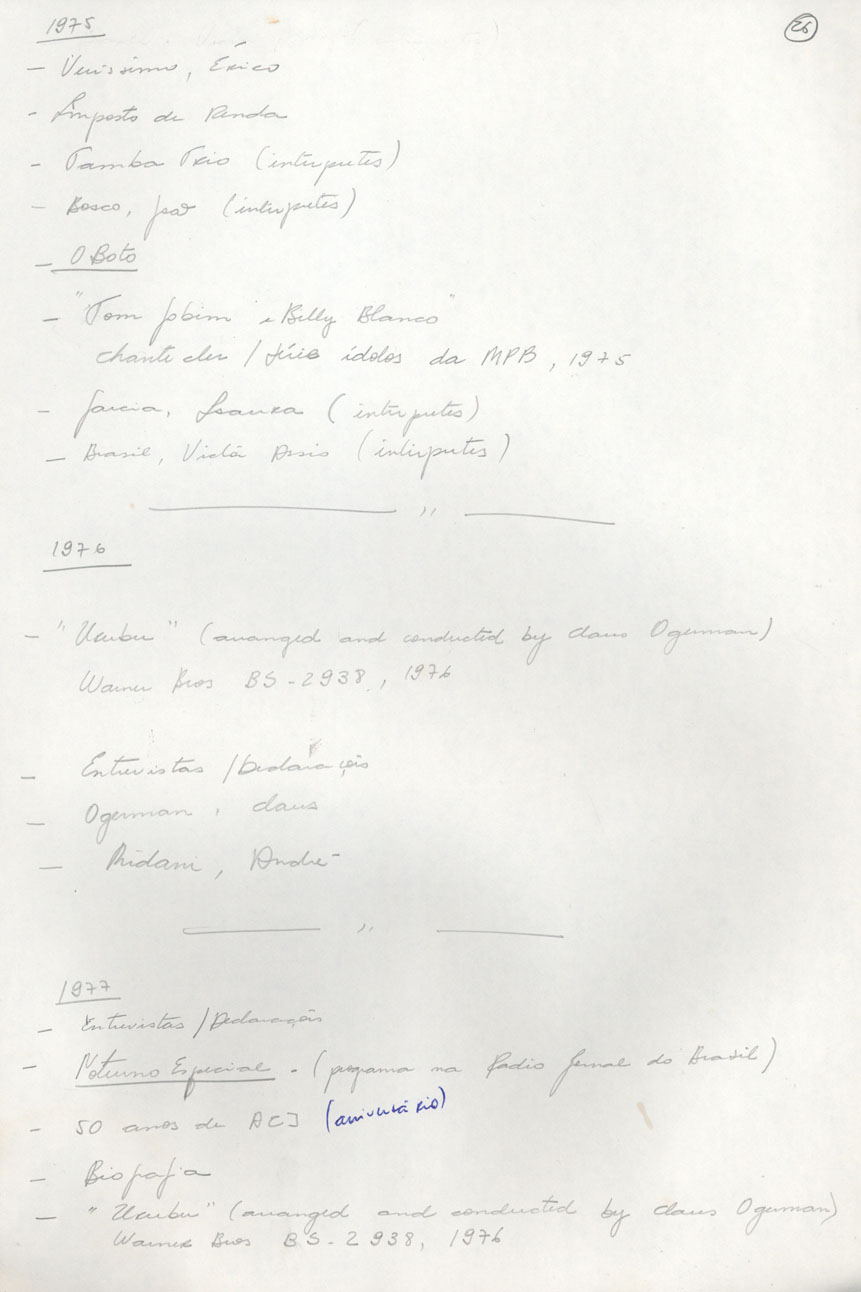 26
1975
— Veríssimo, Érico
- Imposto de Renda
- Tamba Trio (intérpretes)
- Bosco, João (intérpretes)
— O Boto
— "Tom Jobim e Billy Blanco"
Chantecler / Série ídolos da MPB, 1975
- Garcia, Isaura (intérpretes)
— Brasil, Vitor Assis (intérpretes)
——— " ———
1976
— "Urubu" (arranged and conducted by Claus Ogerman)
Warner Bros BS-2938, 1976
— Entrevistas / Declarações
— Ogerman, Claus
— Midani, André
——— " ———
1977
— Entrevistas / Declarações
— Noturno Especial - (programa na Radio Jornal do Brasil)
- 50 anos de ACJ (aniversário)
— Biografia
— "Urubu" (arranged and conducted by Claus Ogerman)
Warner Bros BS-2938, 1976